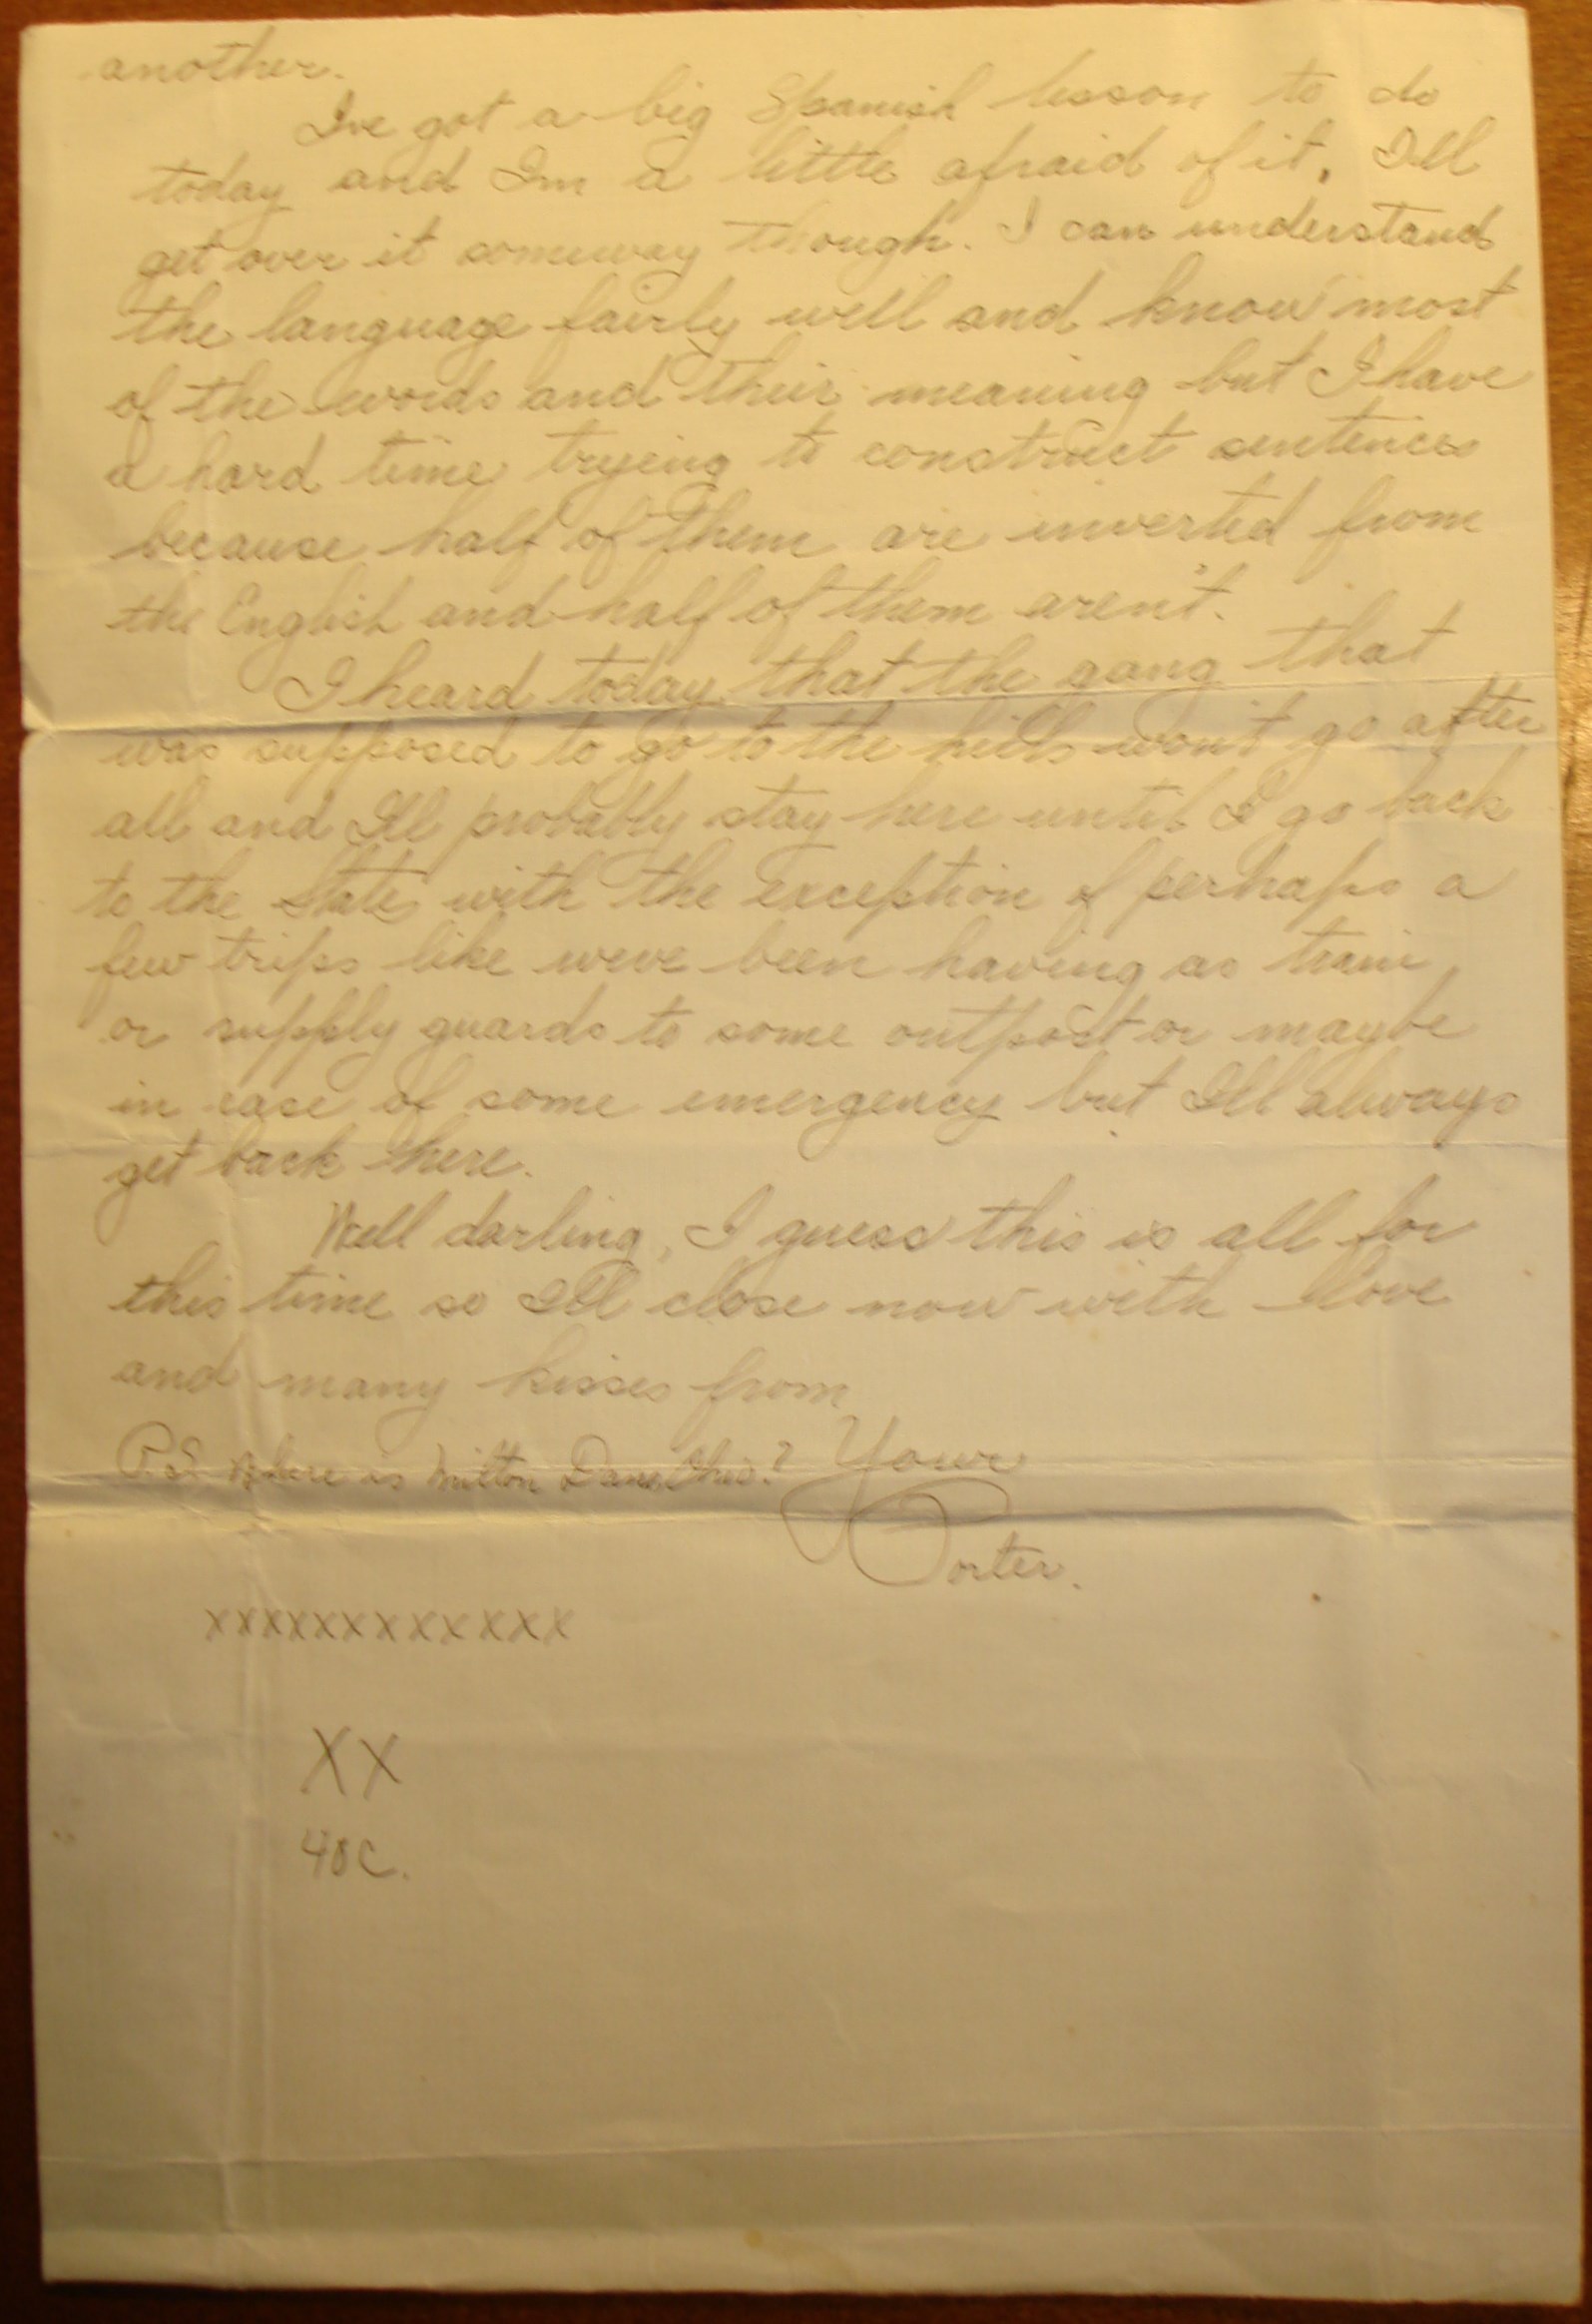 another.
Ive got a big Spanish lesson to do
today and Im a little afraid of it. Ill
get over it someway though. I can understand
the language fairly well and know most
of the words and their meaning but I have
a hard time trying to construct sentences
because half of them are inverted from
the English and half of them aren't.
I heard today that the gang that
was supposed to go to the hills won't go after
all and Ill probably stay here until I go back
to the States with the exception of perhaps a
few trips like weve been having as train
or supply guards to some outpost or maybe
in case of some emergency but Ill always
get back here.
Well darling, I guess this is all for
this time so Ill close now with love
and many kisses from
P.S. Where is Milton ?
Your
Porter.
xxxxxxxxxxxxx
XX